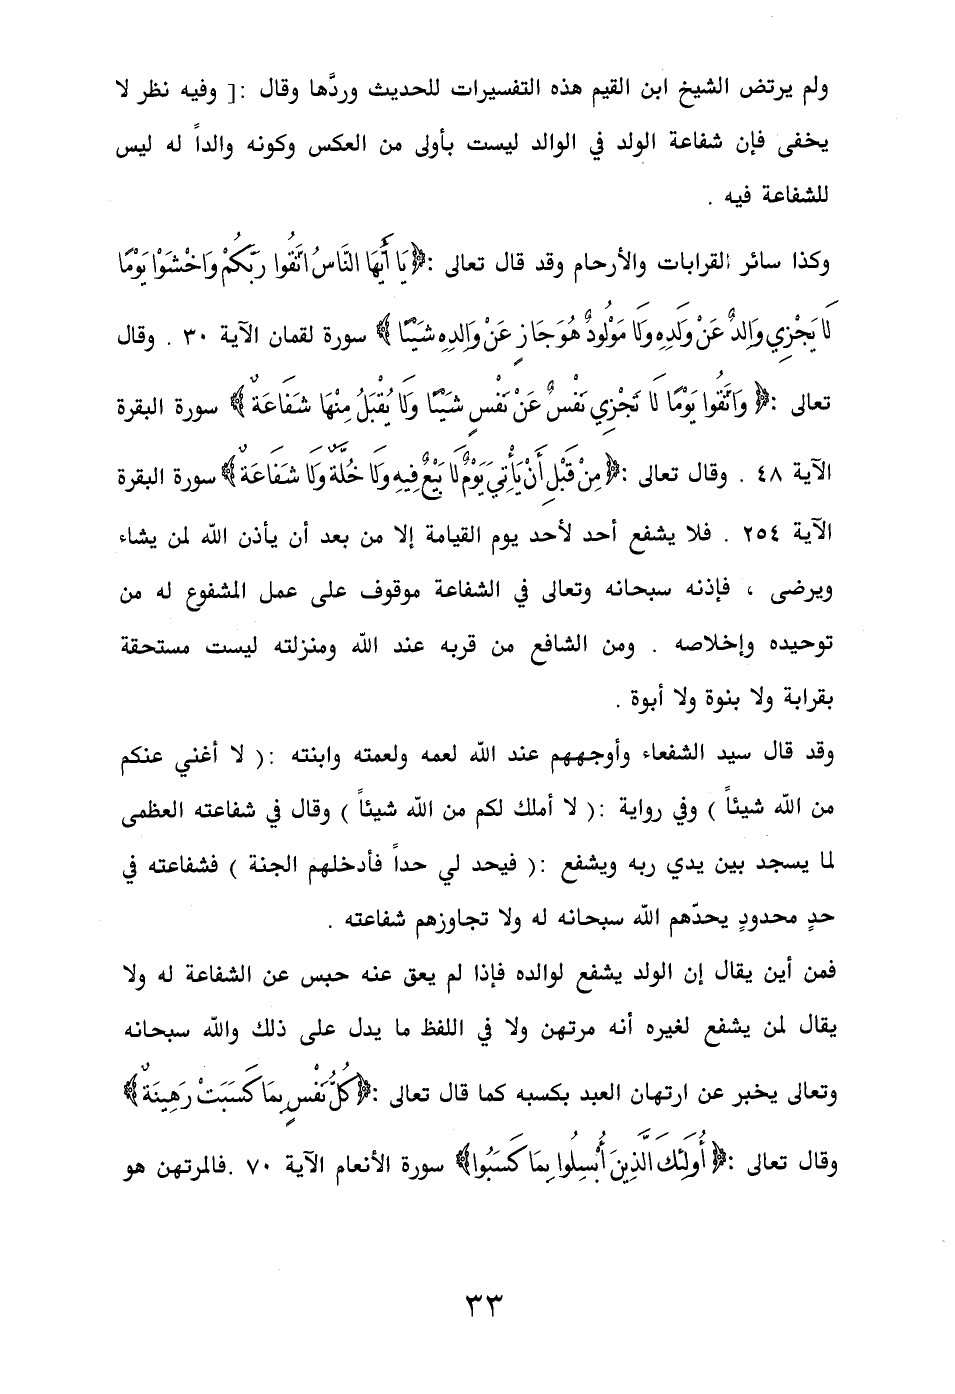 ولم يرتض الشيخ ابن القيم هذه التفسيرات للحديث وردَّها وقال :[ وفيه نظر لا
يخفى فإن شفاعة الولد في الوالد ليست بأولى من العكس وكونه والداً له ليس
للشفاعة فيه .
وكذا سائر القرابات والأرحام وقد قال تعالى :﴿يَا أَيُّهَا النَّاسُ اتَّقُوا رَبَّكُمْ وَاخْشَوْا يَوْمًا
لَا يَجْزِي وَالِدٌ عَنْ وَلَدِهِ وَلَا مَوْلُودٌ هُوَ جَازٍ عَنْ وَالِدِهِ شَيْئًا ﴾ سورة لقمان الآية ٣٠ . وقال
تعالى :﴿ وَاتَّقُوا يَوْمًا لَا تَجْزِي نَفْسٌ عَنْ نَفْسٍ شَيْئًا وَلَا يُقْبَلُ مِنْهَا شَفَاعَةٌ ﴾ سورة البقرة
الآية ٤٨ . وقال تعالى :﴿مِنْ قَبْلِ أَنْ يَأْتِيَ يَوْمٌ لَا بَيْعٌ فِيهِ وَلَا خُلَّةٌ وَلَا شَفَاعَةٌ﴾ سورة البقرة
الآية ٢٥٤ . فلا يشفع أحد لأحد يوم القيامة إلا من بعد أن يأذن الله لمن يشاء
ويرضى ، فإذنه سبحانه وتعالى في الشفاعة موقوف على عمل المشفوع له من
توحيده وإخلاصه . ومن الشافع من قربه عند الله ومنزلته ليست مستحقة
بقرابة ولا بنوة ولا أبوة .
وقد قال سيد الشفعاء وأوجههم عند الله لعمه ولعمته وابنته :( لا أغني عنكم
من الله شيئاً ) وفي رواية :( لا أملك لكم من الله شيئاً ) وقال في شفاعته العظمى
لما يسجد بين يدي ربه ويشفع :( فيحد لي حداً فأدخلهم الجنة ) فشفاعته في
حدٍ محدودٍ يحدّهم الله سبحانه له ولا تجاوزهم شفاعته .
فمن أين يقال إن الولد يشفع لوالده فإذا لم يعق عنه حبس عن الشفاعة له ولا
يقال لمن يشفع لغيره أنه مرتهن ولا في اللفظ ما يدل على ذلك والله سبحانه
وتعالى يخبر عن ارتهان العبد بكسبه كما قال تعالى :﴿كُلُّ نَفْسٍ بِمَا كَسَبَتْ رَهِينَةٌ﴾
وقال تعالى :﴿ أُولَئِكَ الَّذِينَ أُبْسِلُوا بِمَا كَسَبُوا﴾ سورة الأنعام الآية ٧٠ .فالمرتهن هو
٣٣